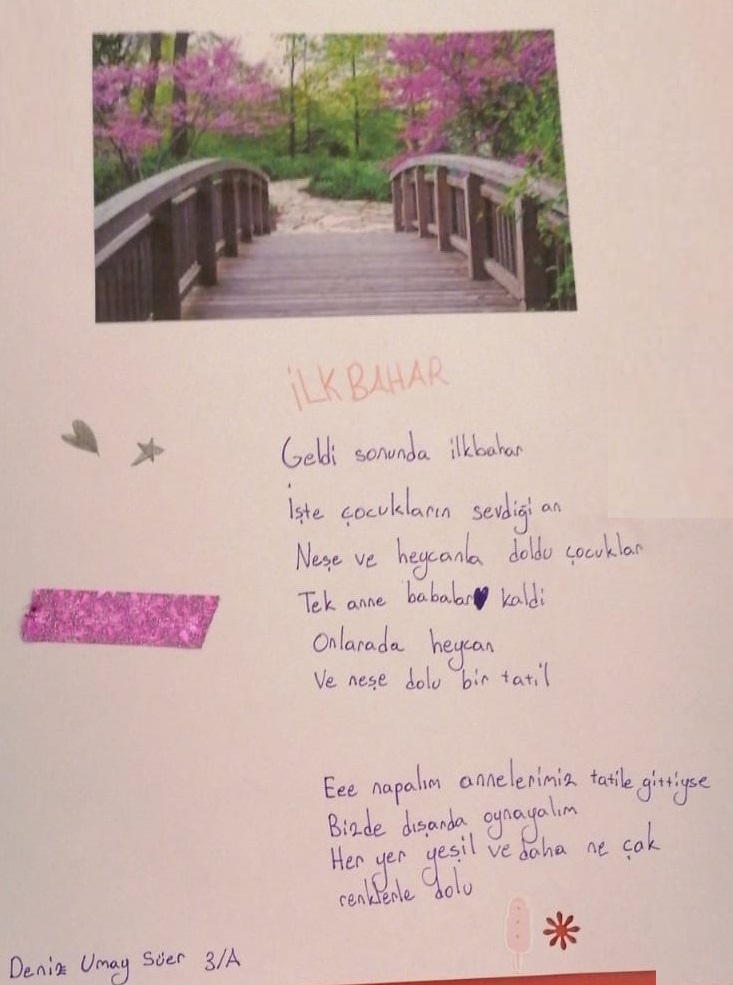 İLKBAHAR
Geldi sonunda ilkbahar
İşte çocukların sevdiği an
Neşe ve heycanla doldu çocuklar
Tek anne babalar kaldi
Onlarada heycan
Ve neşe dolu bir tatil
Eee napalım annelerimiz tatile gittiyse
Bizde dışarıda oynayalım
Her yer yeşil ve daha ne çok
renklerle dolu
Deniz Umay Süer 3/A